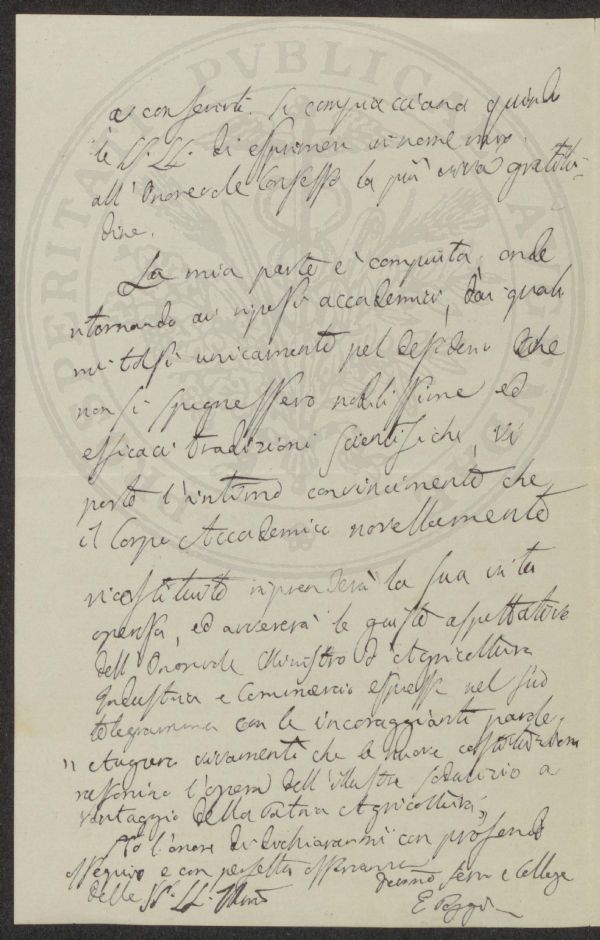 a conferirti. Si compiacciano quindi
le SS. LL. di esprimere in nome mio
all'Onorevole Consesso la più viva gratitu-
dine.
La mia parte è compiuta, onde
ritornando ai riposi accademici, dai quali
mi tolsi unicamente pel desiderio che
non si spegnessero nobilissime ed
efficaci tradizioni scientifiche, vi
porto l'intimo convincimento che
il Corpo Accademico novellamente
ricostituito riprenderà la sua vita
operosa, ed avvererà le giuste aspettative
dell'Onorevole Ministro d'Agricoltura
Industria e Commercio espresse nel suo
telegramma con le incoraggianti parole,
"Auguro vivamente che le nuove
l'opera dell'illustre sodalizio a
vantaggio della Patria Agricoltura"
Ho l'onore di dichiararmi con profondo
ossequio e con perfetta osservanza
delle SS. LL. Illme
Devmo Servo e Collega
E. Poggi
PVBLICA
PROSPERITATI